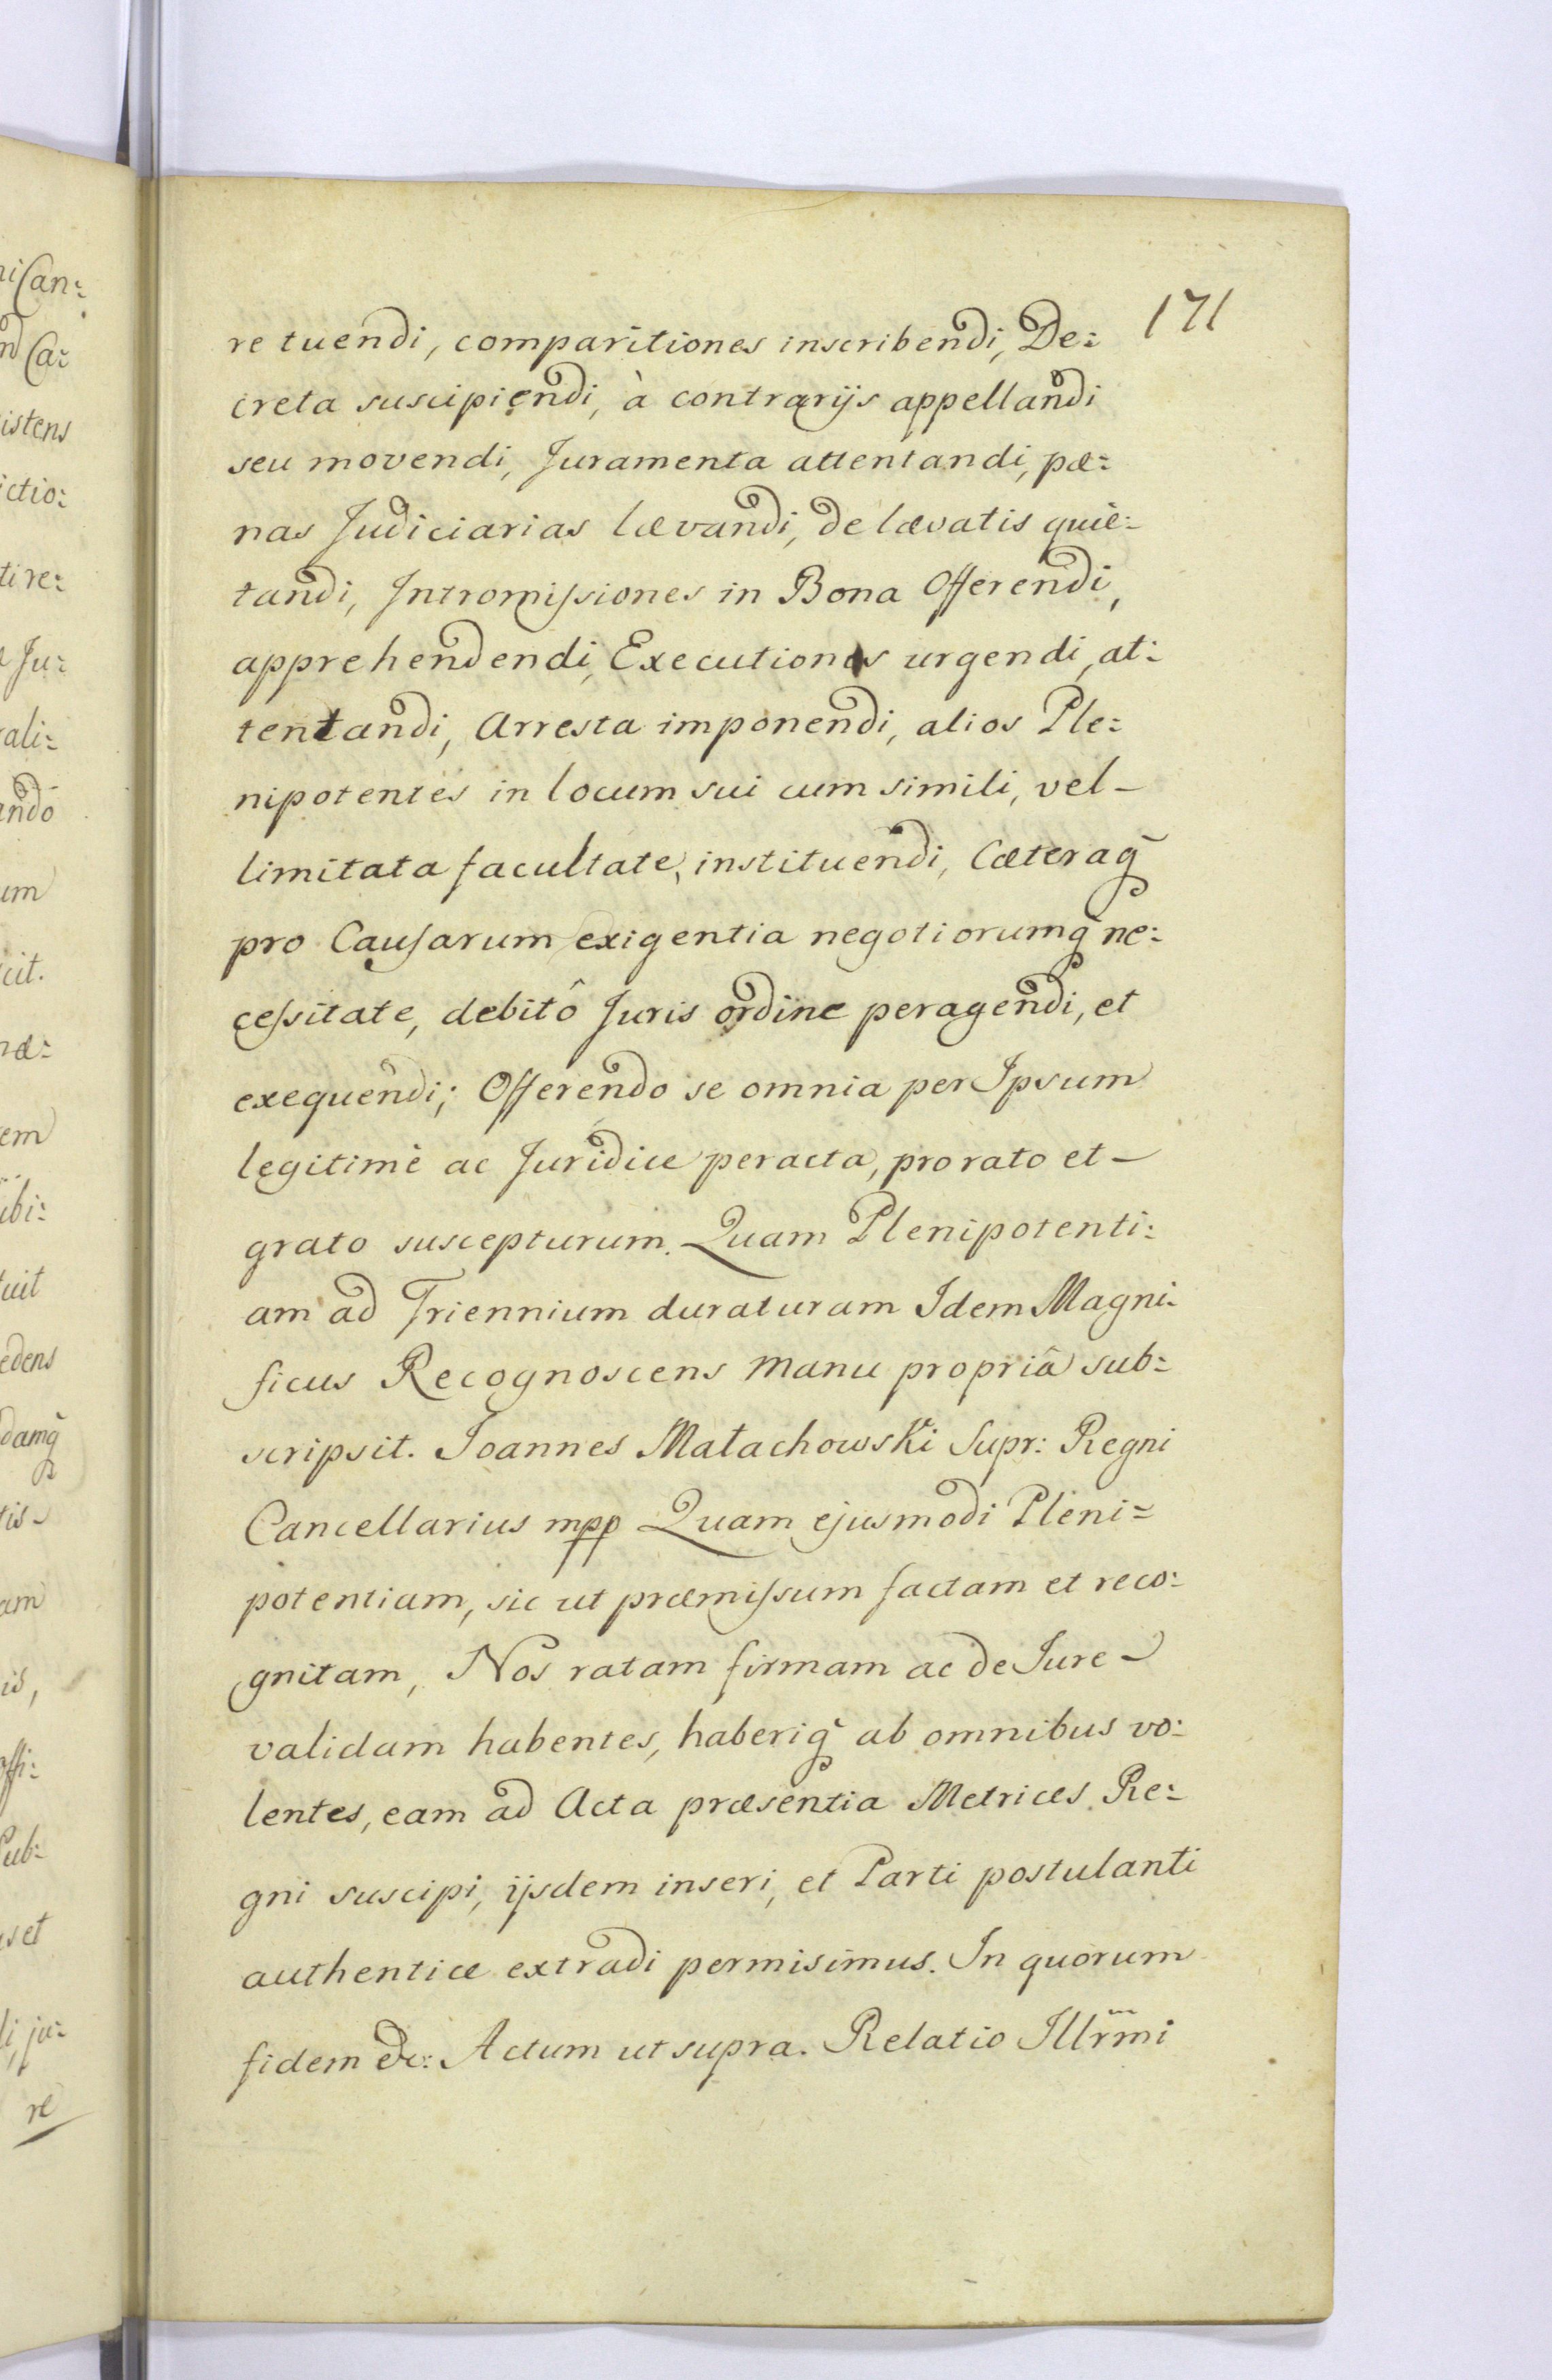 171
re tuendi, comparitiones inscribendi, De:
creta suscipiendi, à contrarijs appellandi
seu movendi, Juramenta attentandi, pæ:
nas Judiciarias lævandi, de lævatis quie:
tandi, Intromiſsiones in Bona Offerendi,
apprehendendi, Executiones urgendi, at:
tentandi, Arresta imponendi, alios Ple:
nipotentes in locum sui cum simili, vel
limitata facultate, instituendi, Cæteraq̃
pro Cauſarum exigentia negotiorumq̃ ne:
ceſsitate, debitô Juris ordine peragendi, et
exequendi; Offerendo se omnia per Ipsum
legitimè ac Juridice peracta, pro rato et
grato suscepturum. Quam Plenipotenti:
am ad Triennium duraturam Idem Magni:
ficus Recognoscens manu propriâ sub:
scripsit. Joannes Małachowski Supr: Regni
Cancellarius mpp Quam ejusmodi Pleni:
potentiam, sic ut præmiſsum factam et reco:
gnitam, Nos ratam firmam ac de Jure
validam habentes, haberiq̃ ab omnibus vo:
lentes, eam ad Acta præsentia Metrices Re:
gni suscipi, ijsdem inseri, et Parti postulanti
authentice extradi permisimus. In quorum
fidem &c: Actum ut supra. Relatio Illr̃mi
niCan:
Ca:
istens
ictio:
ti re:
Ju:
rali:
ando
um
cit.
næ:
em
ibi:
tuit
edens
damq̃
tis
am
is,
offi:
Pub:
set
li, ju:
re